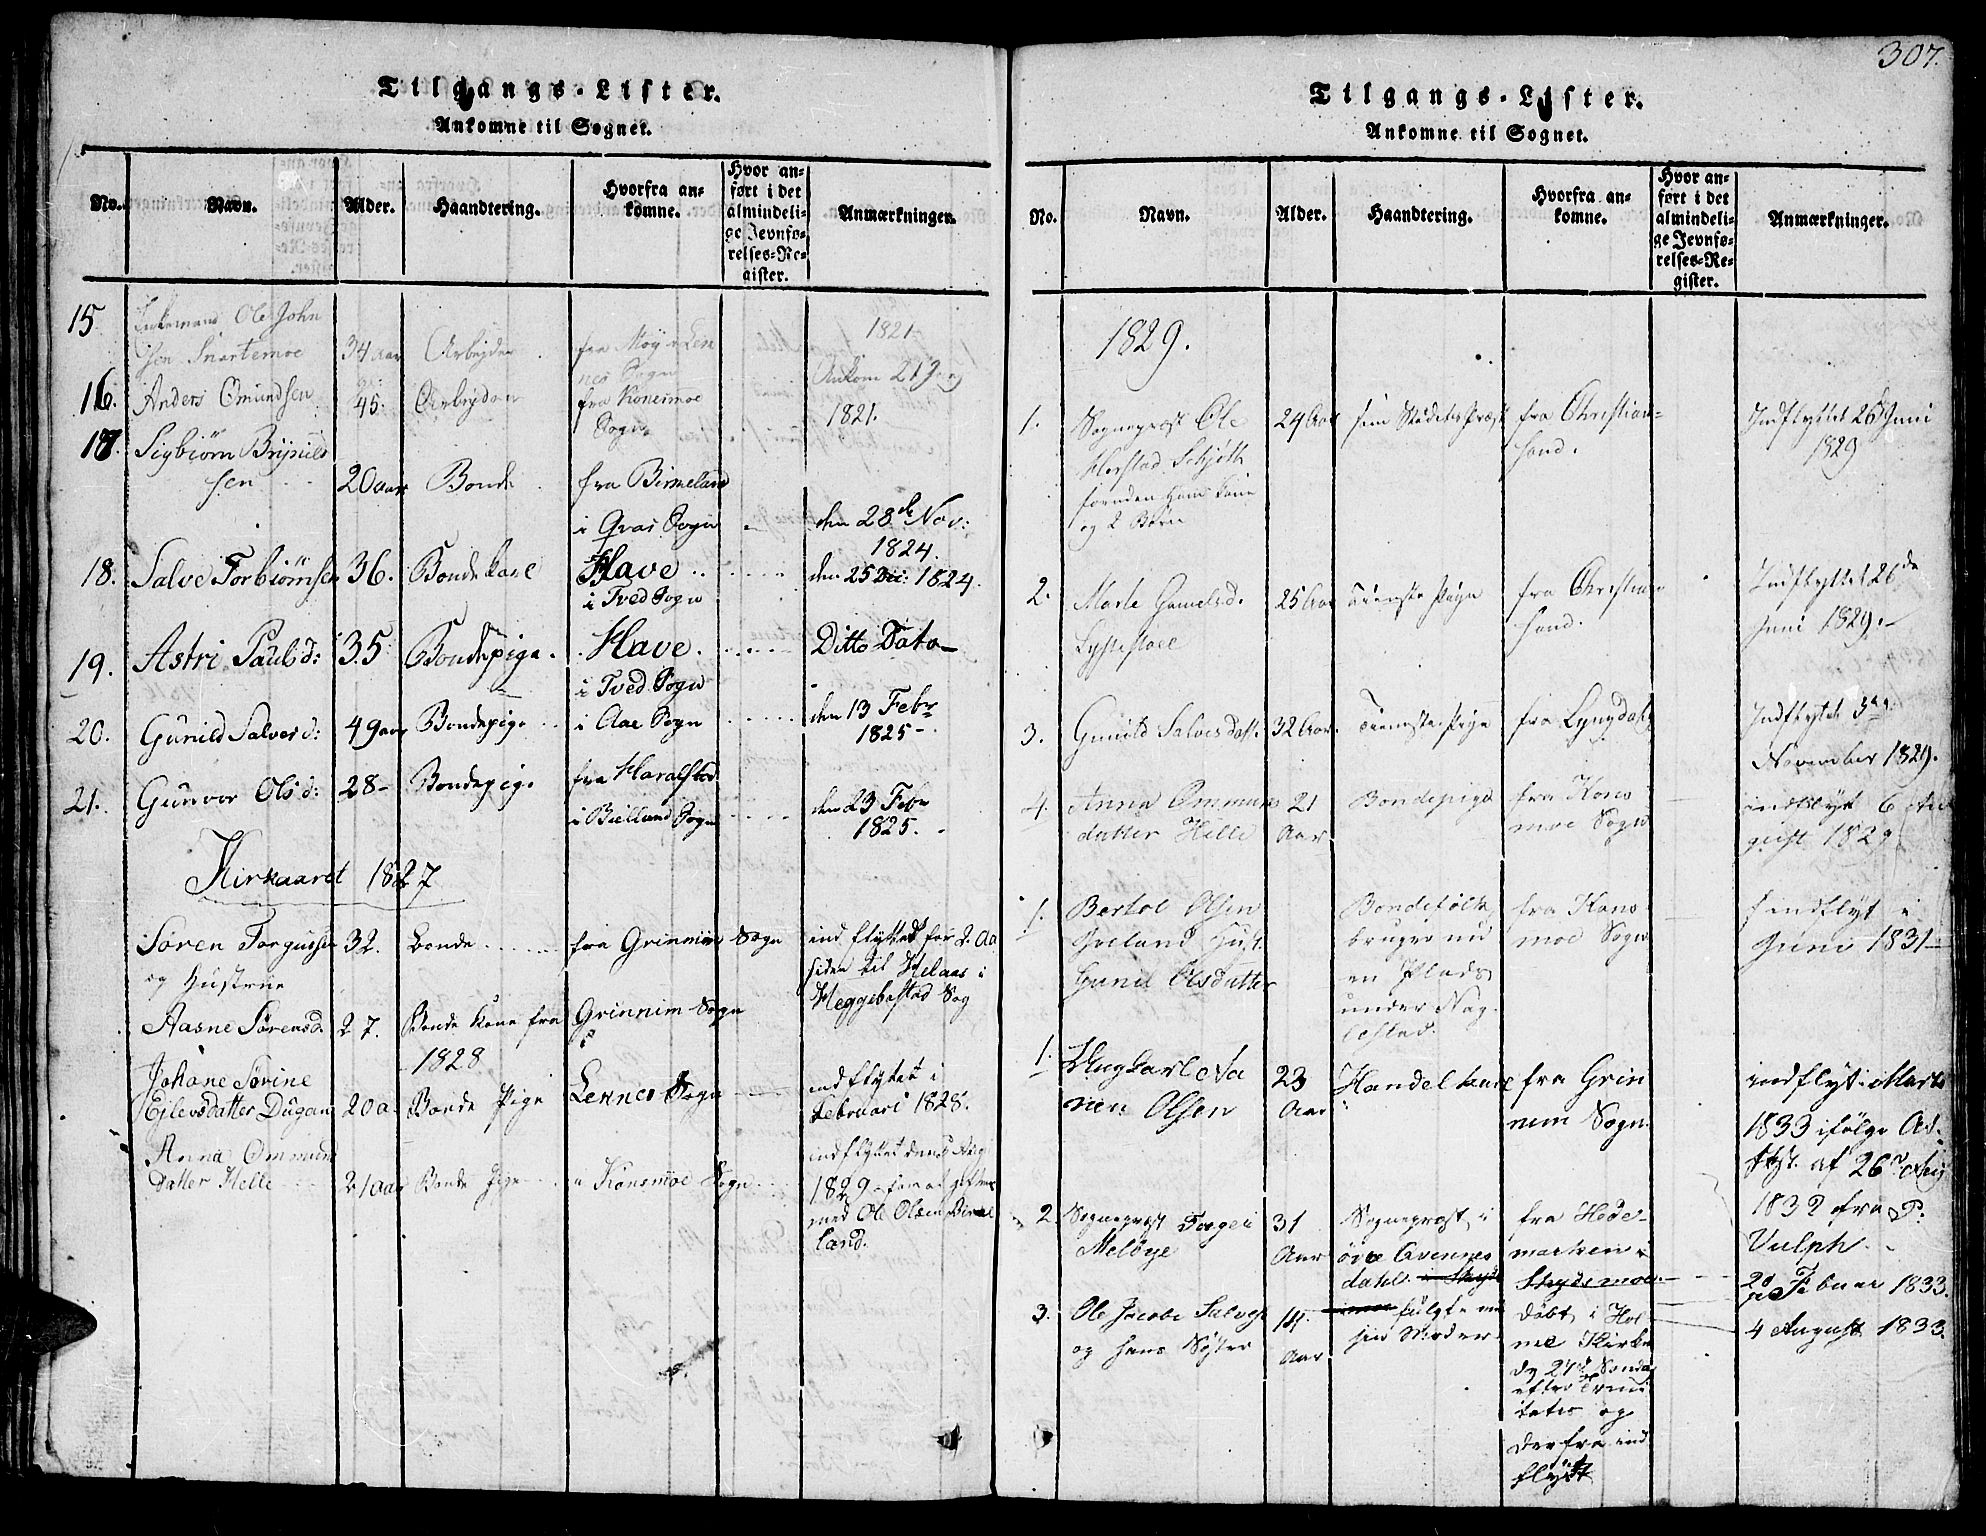 Tilgangs-Lister.
Ankomne til Sognet.
No. Navn. Alder. Haandtering. Hvorfra ankomne. Hvor anført i det almindelige Jevnførelses-Register. Anmærkninger.
15 Enkemand Ole John
sen Snartemoe 34 aar Arbejder fra Moy i Len
nes Sogn 1821
Ankom 1821.
16. Anders Omundsen 45. Arbejder fra Konesmoe
Sogn
17. Sigbiørn Brynild
sen 20 aar Bonde fra Birkeland
i Qvas Sogn den 28de Nov:
1824.
18. Salve Torbiörnsen 36. Bondekarl Have
i Tved Sogn den 25 Dec: 1824.
19. Astri Paulsd: 35 Bondepige. Have.
i Tved Sogn Ditto Dato
20. Gunild Salvesd: 49 aar Bondepige i Aae Sogn den 13 Febr
1825
21. Gunvor Olsd: 28 Bondepige fra Haralstad
i Biellund Sogn den 23 Febr
1825.
Kirkaaret 1827
Søren Torgussen 32. Bonde fra Grinnim Sogn
og Hustrue
indflyttet for 2 Aa
siden til Helaas i
Heggebostad Sog
Aasne Sørensd 27. Bonde Kone fra Grinnim Sogn
1828
Johane Sørine
Ejlevsdatter Dugan 20 a. Bonde Pige Lennes Sogn indflytet i
Februari 1828.
Anna Ommund
datter Helle 21 aar Bonde Pige Konsmoe Sogn
indflyttet den 6 Aug
1829 for at giftes
med Ole Olsen Birke
land.
307.
Tilgangs-Lister.
Ankomne til Sognet.
No. Navn. Alder. Haandtering. Hvorfra ankomne. Hvor anført i det almindelige Jevnførelses-Register. Anmærkninger.
1829.
1. Sognepræst Ole 24 Aar fra Christian-
sand. Indflyttet 26 Juni
1829
Herstad Schjøth
foruden Hans Kone
og 2 Børn
2. Marte Gamelsd. 25 Aar Tieneste Pige fra Christian-
sand. Indflyttet 26de
Juni 1829.
3. Gunild Salvesdatt. 32 Aar. Tieneste Pige fra Lyngdahl Indflytet 3die
November 1829.
4. Anna Ommuns
datter Helle 21
Aar Bondepige fra Kons
moe Sogn indflyt 6 Au
gust 1829
1. Bertol Olsen
Gunil Olsdatter
Bondefolk
bruger nu
en Plads
under Nag
lestad. fra Kons
moe Sogn indflyt i
Juni 1831
1. Ungkarl
Olsen 23
Aar Handelkarl fra Grin
nem Sogn. indflyt i Marts
1833 ifølge At-
tst. af 26 Aug
1832 fra P:
Vulph.
2. Sognepræst Tage
Meløye 31
Aar Sognepræst i
øvre Qvennes
dahl. fra Hede-
marken i
Skydsmoe. 20 Febuar 1833.
3. Ole Jacobe Salves
og hans Syster 14
Aar fulgte med
sin Moder døbt i Hol
me Kirke
dy 24de Søndag
efter Trini
tatis og
derfra ind
flytt 4 August 1833.